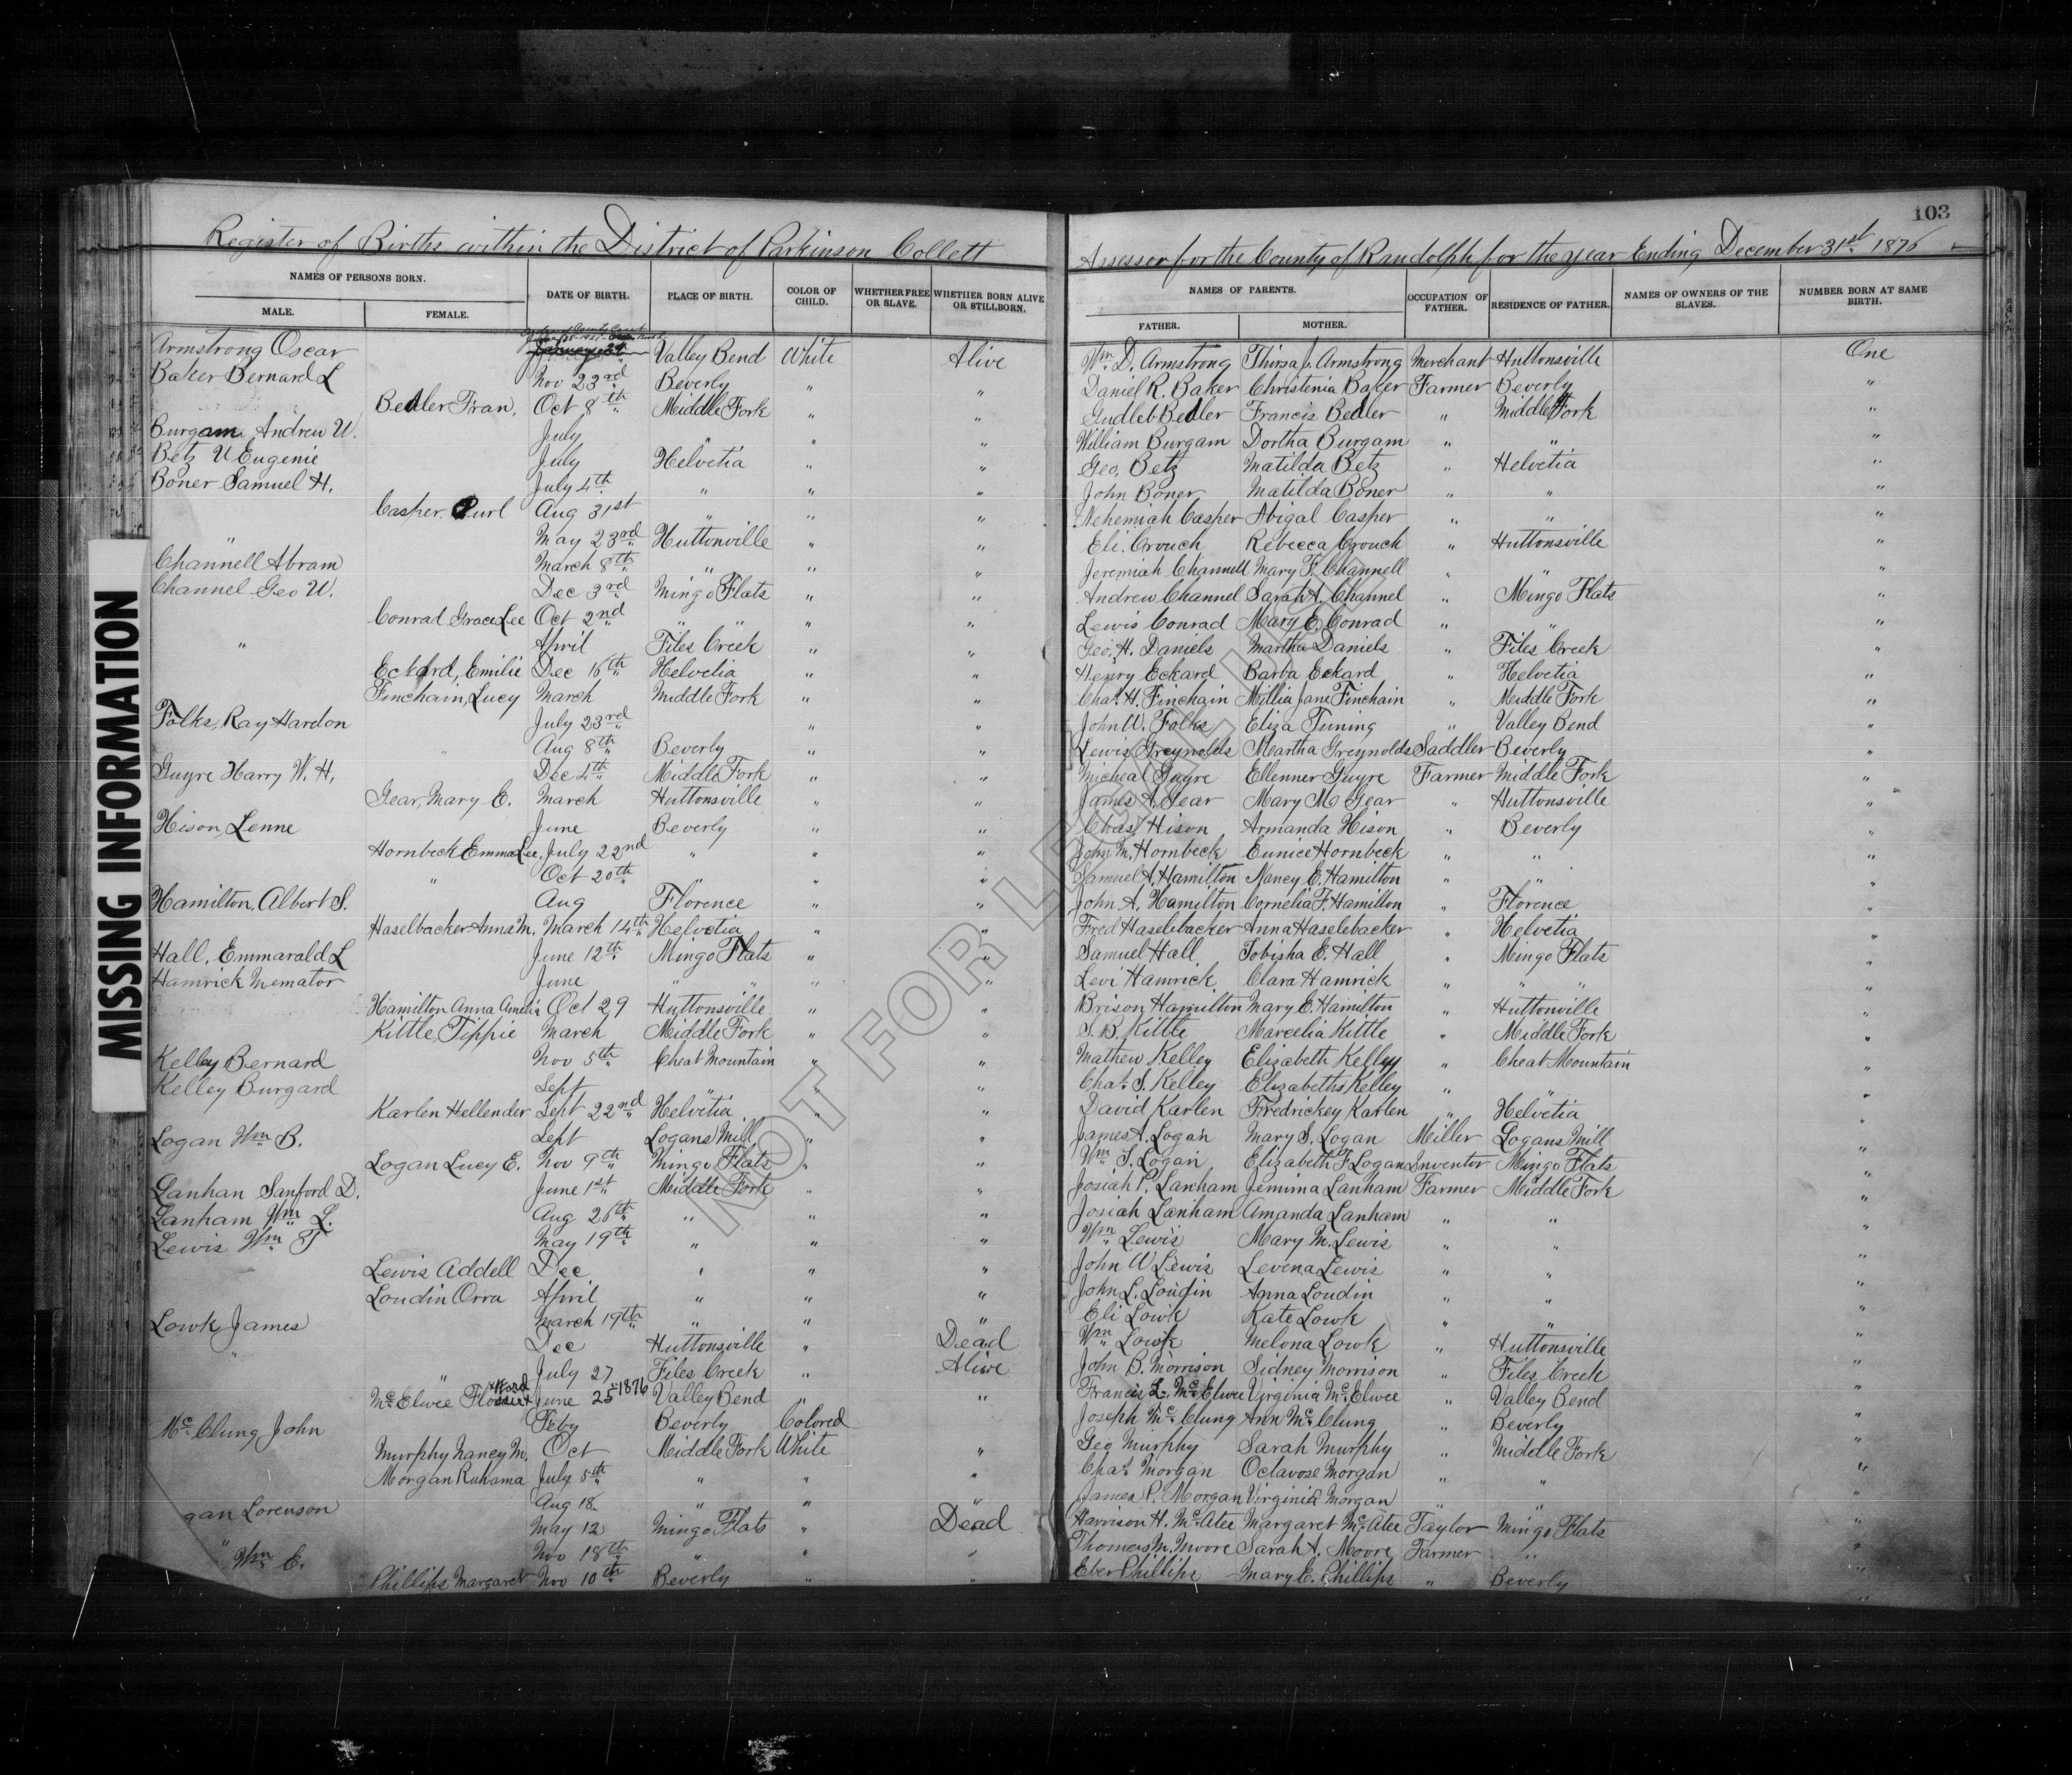 103
Register of Births within the District of Parkinson Collett Assessor for the County of Randolph for the year Ending December 31st 1876
NAMES OF PERSONS BORN. DATE OF BIRTH. PLACE OF BIRTH. COLOR OF CHILD. WHETHER FREE OR SLAVE. WHETHER BORN ALIVE OR STILLBORN. NAMES OF PARENTS. OCCUPATION OF FATHER. RESIDENCE OF FATHER. NAMES OF OWNERS OF THE SLAVES. NUMBER BORN AT SAME BIRTH.
MALE. FEMALE. FATHER. MOTHER.
Armstrong Oscar Valley Bend White Alive Wm D. Armstrong Thirsa J. Armstrong Merchant Huttonsville One
Baker Bernard L Nov 23rd Beverly " " Daniel R. Baker Christenia Baker Farmer Beverly "
Bedler Fran, Oct 8th Middle Fork " " Gudleb Bedler Francis Bedler " Middle Fork "
Burgam Andrew W. July " " " William Burgam Dortha Burgam " " "
Betz U Eugenie July Helvetia " " Geo, Betz Matilda Betz " Helvetia "
Boner Samuel H. July 4th " " " John Boner Matilda Boner " " "
Casher Purl Aug 31st " " " Nehemiah Casper Abigal Casper " " "
" May 23rd Huttonville " " Eli. Crouch Rebecca Crouch " Huttonsville "
Channell Abram March 8th " " " Jeremiah Channell Mary F. Channell " " "
Channel Geo W. Dec 3rd Mingo Flats " " Andrew Channel Sarah A. Channel " Mingo Flats "
Conrad Grace Lee Oct 2nd " " " " Lewis Conrad Mary E. Conrad " " "
" April Files Creek " " Geo, H. Daniels Martha Daniels " Files Creek "
Eckard, Emilie Dec 16th Helvetia " " Henry Eckard Barba Eckard " Helvetia "
Finchain, Lucy March Middle Fork " " Chas. H. Finchain Millia Jane Finchain " Middle Fork "
Folks, Ray Hardon July 23rd " " " John W. Folks Eliza Tuning " Valley Bend "
" Aug 8th Beverly " " Lewis Greynolds Martha Greynolds Saddler Beverly "
Guyre Harry W. H, Dec 4th Middle Fork " " Micheal Guyre Ellenner Guyre Farmer Middle Fork "
Gear, Mary E. March Huttonsville " " James A. Gear Mary M Gear " Huttonsville "
Hison, Lenne June Beverly " " Chas, Hison Armanda Hison " Beverly "
Hornbeck Emma Lee, July 22nd " " " John M. Hornbeck Eunice Hornbeck " " "
" Oct 20th " " " Samuel A. Hamilton Nancy E. Hamilton " " "
Hamilton, Albert S. Aug Florence " " John A. Hamilton Cornelia F. Hamilton " Florence "
Haselbacker Anna M. March 14th Helvetia " " Fred Haselebacker Anna Haselebacker " Helvetia "
Hall, Emmarald L June 12th Mingo Flats " " Samuel Hall Tobisha E. Hall " Mingo Flats "
Hamrick Nemator June " " " " Levi Hamrick Clara Hamrick " " " "
Hamilton Anna Amelia Oct 29 Huttonsville " " Brison Hamilton Mary E. Hamilton " Huttonville "
Kittle, Tippie March Middle Fork " " S. B. Kittle Marcelia Kittle " Middle Fork "
Kelley Bernard Nov 5th Cheat Mountain " " Mathew Kelley Elizabeth Kelley " Cheat Mountain "
Kelley Burgard Sept " " " Chas. S. Kelley Elizabeth Kelley " " "
Karlen Hellender Sept 22nd Helvetia " " David Karlen Fredrickey Karlen " Helvetia "
Logan Wm B. Sept Logans Mill " " James A. Logan Mary S. Logan Miller Logans Mill "
Logan Lucy E. Nov 9th Mingo Flats " " Wm S. Logan Elizabeth F Logan Inventor Mingo Flats "
Lanhan Sanford D. June 1st Middle Fork " " Josiah P. Lanham Jemima Lanham Farmer Middle Fork "
Lanham Wm L. Aug 26th " " " Josiah Lanham Amanda Lanham " " "
Lewis Wm T May 19th " " " Wm Lewis Mary M. Lewis " " "
Lewis Addell Dec " " " John W Lewis Levena Lewis " " "
Loudin Orra April " " " John L. Loudin Anna Loudin " " "
Lowk James March 19th " " " Eli Lowk Kate Lowk " " "
" Dec Huttonsville " Dead Wm Lowk Melona Lowk " Huttonsville "
" July 27 Files Creek " Alive John B. Morrison Sidney Morrison " Files Creek "
McElwee June 25 1876 Valley Bend " " Francis L. McElwee Virginia McElwee " Valley Bend "
McClung John Feby Beverly Colored Joseph McClung Ann McClung " Beverly "
Murphy Nancy M. Oct Middle Fork White " Geo Murphy Sarah Murphy " Middle Fork "
Morgan Ruhama July 5th " " " Chas. Morgan Octavose Morgan " " "
gan Lorenson Aug 18 " " " James P. Morgan Virginia Morgan " " "
May 12 Mingo Flats " Dead Harrison H. McAtee Margaret McAtee Taylor Mingo Flats "
" Wm E. Nov 18th " " " Thomas M. Moore Sarah A. Moore Farmer " "
Phillips Margaret Nov 10th Beverly " " Eber Phillips Mary E. Phillips " Beverly "
MISSING INFORMATION
NOT FOR LEGAL USE